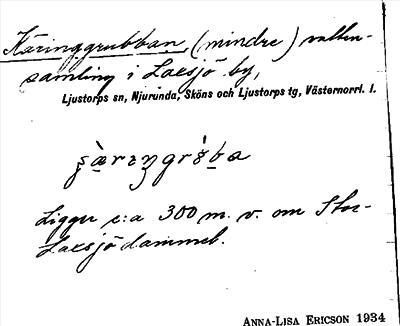 Käringgrubban (mindre) vatten-
samling i Laxsjö by,
Ljustorps sn, Njurunda, Sköns och Ljustorps tg, Västernorrl. l.
Ligger c:a 300 m. v. om Stor-
Laxsjödammet.
ANNA-LISA ERICSON 1934